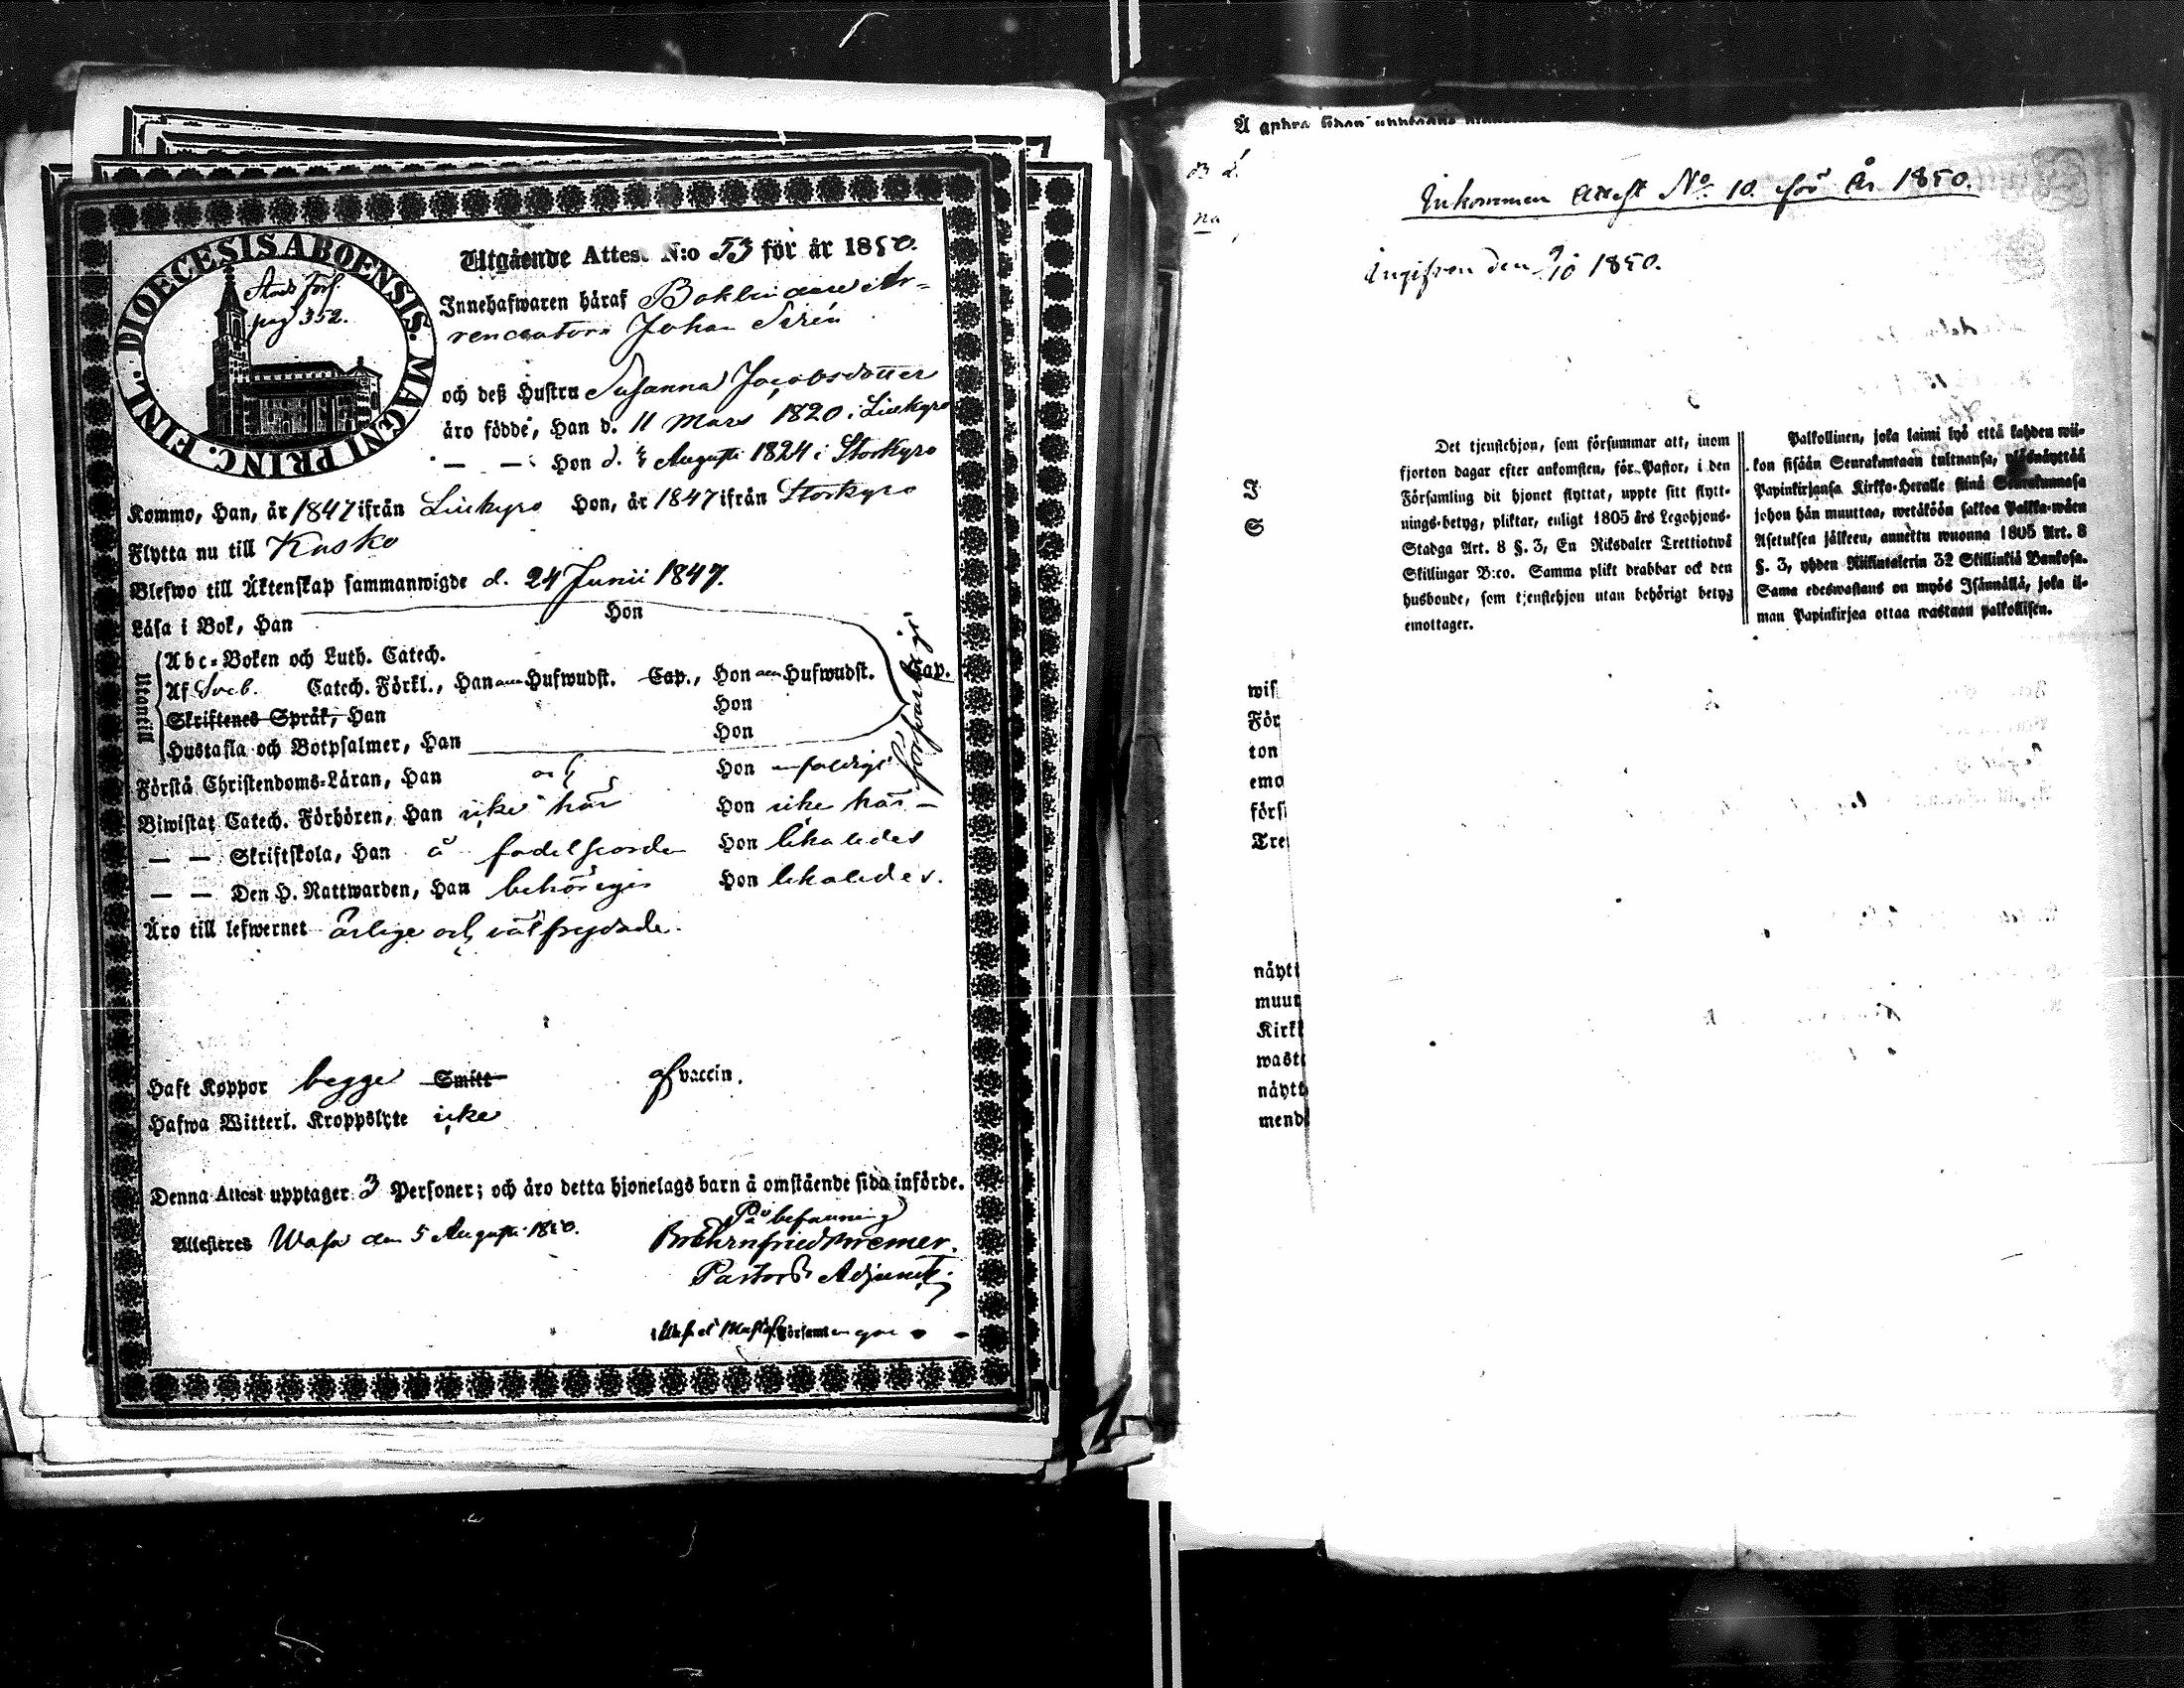 DIOECESIS ABOENSIS. MAGNI PRINC. FINL.
Stads Förs.
pag 352.
Utgående Attest N:o 53 för år 1850.
Innehafwaren häraf Bokbindare Ar-
rendatorn Johan Sirén
och deß Hustru Susanna Jacobsdotter
äro födde, Han d. 11 Mars 1820 i Lillkyro
— — Hon d. Augusti 1824 i Storkyro
Kommo, Han, år 1847 ifrån Lillkyro Hon, år 1847 ifrån Storkyro
Flytta nu till Kasko
Blefwo till Äktenskap sammanwigde d. 24 Junii 1847.
Läsa i Bok, Han Hon
Utantill
Abc-Boken och Luth. Catech.
Af Sveb. Catech. Förkl., Han Hufwudst. Cap., Hon Hufwudst. Cap.
Skriftenes Språk, Han Hon
Hustafla och Botpsalmer, Han Hon
försvarligt
Förstå Christendoms-Läran, Han och Hon
Biwistat Catech. Förhören, Han icke här Hon icke här —
— — Skriftskola, Han å födelseorden Hon likaledes
— — Den H. Nattwarden, Han behörigen Hon likaledes.
Äro till lefwernet ärlige och välfrejdade.
Haft Koppor begge Smitt af vaccin.
Hafwa Witterl. Kroppslyte icke
Denna Attest upptager 3 Personer; och äro detta hjonelags barn å omstående sida införde.
Attesteras Wasa den 5 Augusti 1850.
På befallning
Ehrnfried Bremer.
Pastors Adjunct.
Å andra sidan upptagne
Inkommen Attest No 10 för år 1850.
Ingifven den 9/10 1850.
Det tjenstehjon, som försummar att, inom
fjorton dagar efter ankomsten, för Pastor, i den
Församling dit hjonet flyttat, uppte sitt flytt-
nings-betyg, pliktar, enligt 1805 års Legohjons-
Stadga Art. 8 §. 3, En Riksdaler Trettiotwå
Skillingar B:co. Samma plikt drabbar ock den
husbonde, som tjenstehjon utan behörigt betyg
emottager.
Palkollinen, joka laimi lyö että kahden wii-
kon sisään Seurakuntaan tultuansa, ylösnäyttää
Papinkirjansa Kirkko-Heralle siinä Seurakunnasa
johon hän muuttaa, wetäköön sakkoa Palkka-wäen
Asetuksen jälkeen, annettu wuonna 1805 Art. 8
§. 3, yhden Riikintalerin 32 Skillinkiä Bankosa.
Sama edeswastaus on myös Isännällä, joka il-
man Papinkirjaa ottaa wastaan palkollisen.
I
S
wis
För
ton
emo
förs
Tre
näyt
muut
Kirk
wast
näytt
mend